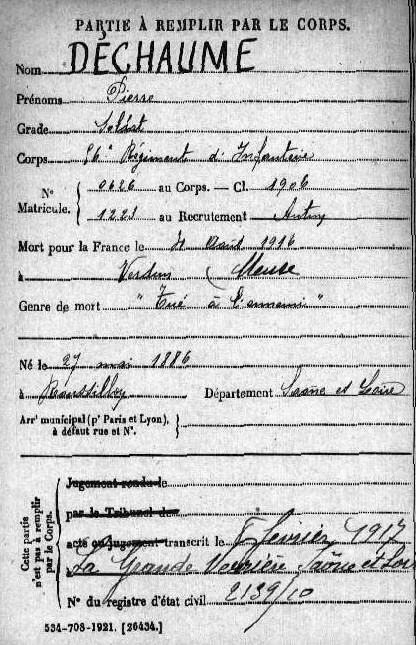 PARTIE À REMPLIR PAR LE CORPS.
Nom DÉCHAUME
Prénoms Pierre
Grade Soldat
Corps 56e Régiment d'Infanterie
N° Matricule. 0626 au Corps. — Cl. 1906
1223 au Recrutement Autun
Mort pour la France le Août 1916
à Verdun (Meuse
Genre de mort "Tué à l'ennemi"
Né le 27 mai 1886
à Roussillon Département Saône et Loire
Arrt municipal (pr Paris et Lyon), à défaut rue et N°.
Cette partie n'est pas à remplir par le Corps.
Jugement rendu le
par le Tribunal de
acte ou jugement transcrit le février 1917
La Grande Verrière Saône et Loire
N° du registre d'état civil 2139/10
534-708-1921. [26434.]